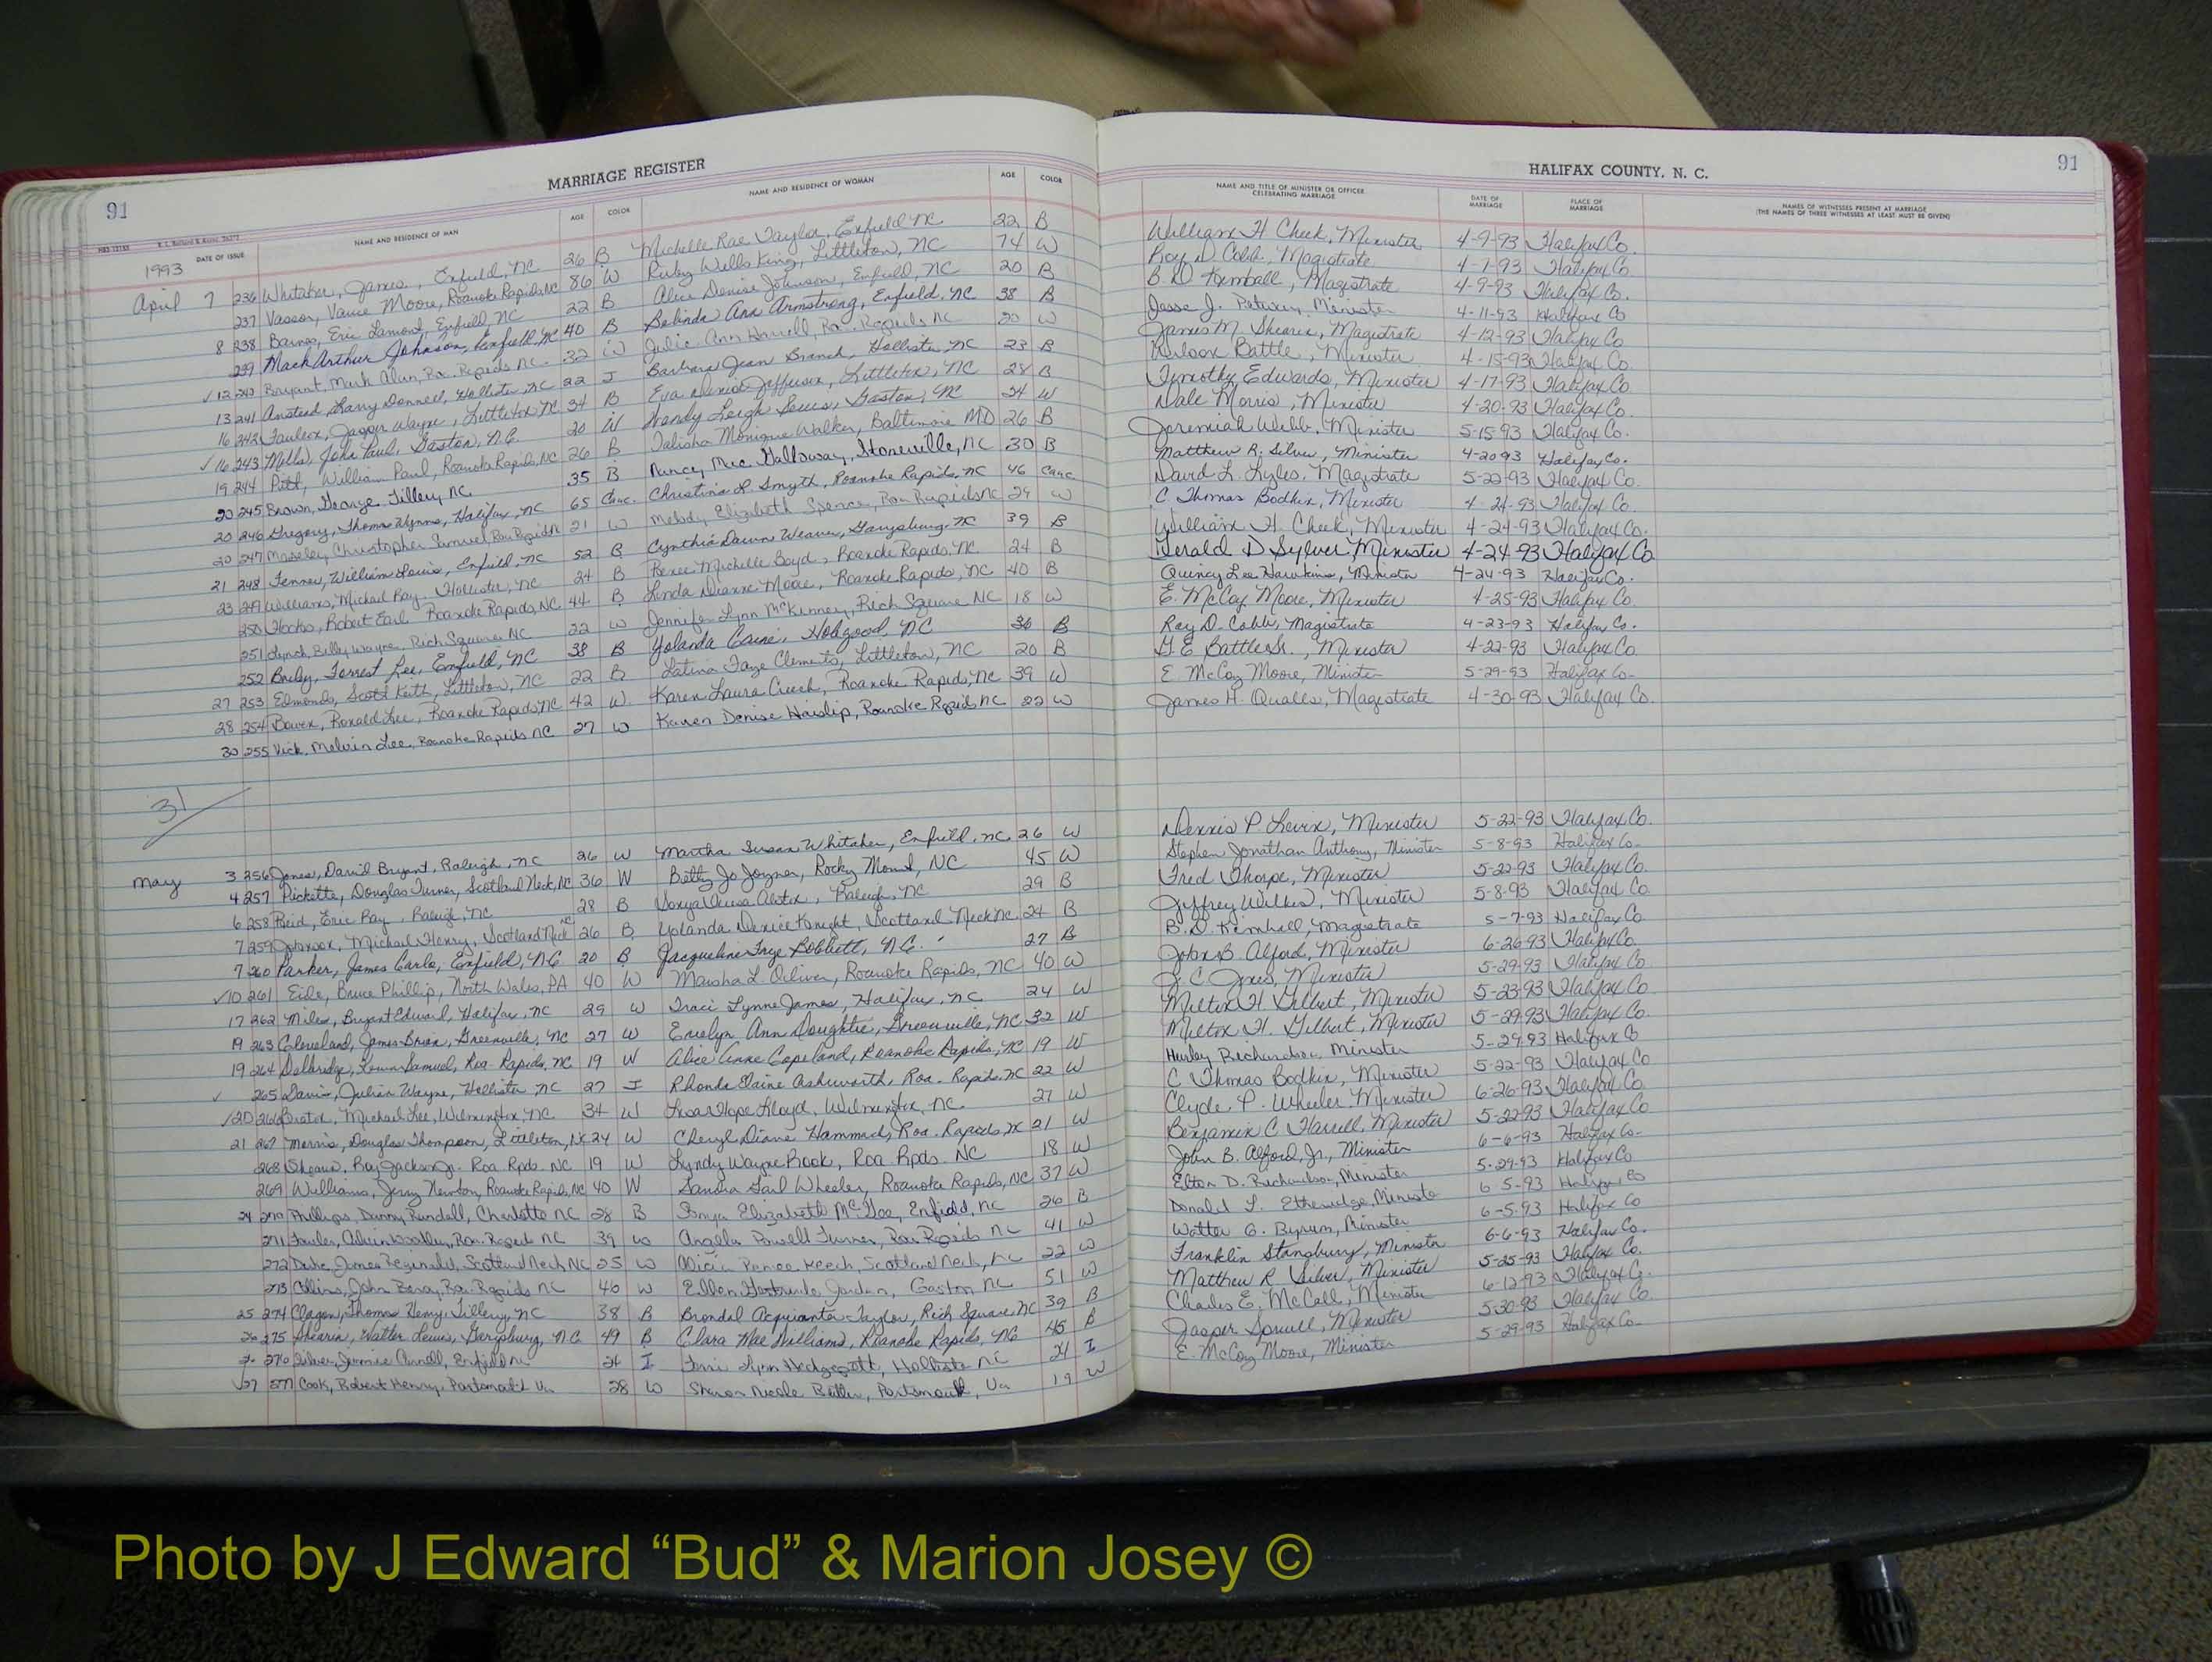 MARRIAGE REGISTER
91
NAME AND RESIDENCE OF MAN AGE COLOR NAME AND RESIDENCE OF WOMAN AGE COLOR
DATE OF ISSUE
1993
April 7 236 Whitaker, James, Enfield, NC 26 B Michelle Rae Taylor, Enfield NC 22 B
237 Vassor, Vance Moore, Roanoke Rapids NC 86 W Ruby Wells King, Littleton, NC 74 W
8 238 Barnes, Eric Lamont, Enfield, NC 22 B Alice Denise Johnson, Enfield, NC 20 B
239 Mack Arthur Johnson, Enfield, NC 40 B Belinda Ann Armstrong, Enfield, NC 38 B
12 240 Bryant, Mark Alan, Roa. Rapids NC 32 W Julie Ann Harrell, Roa. Rapids NC 20 W
13 241 Ansted, Larry Donnell, Hollister, NC 22 I Barbara Jean Branch, Hollister, NC 23 B
16 242 Faulcon, Jasper Wayne, Littleton NC 34 B Eva Jefferson, Littleton, NC 28 B
16 243 Mills, John Paul, Gaston, N.C. 20 W Wendy Leigh Gaston, NC 24 W
19 244 Pitt, William Paul, Roanoke Rapids, NC 26 B Talisha Monique Walker, Baltimore MD 26 B
20 245 Brown, George Tillery NC 35 B Nancy Mae Galloway, Stoneville, NC 30 B
20 246 Gregory, Thomas Wynns, Halifax, NC 65 Cauc. Christina L. Smyth, Roanoke Rapids, NC 46 Cauc
20 247 Moseley, Christopher Samuel, Roa Rapids NC 21 W Melody Elizabeth Spence, Roa Rapids NC 24 W
21 248 Tenner, William Louis, Enfield, NC 52 B Cynthia Dawn Weaver, Garysburg, NC 39 B
23 249 Williams, Michael Ray, Hollister, NC 24 B Renee Michelle Boyd, Roanoke Rapids, NC 24 B
250 Robert Earl Roanoke Rapids, NC 44 B Linda Dianne Moore, Roanoke Rapids, NC 40 B
251 Lynch, Billy Wayne, Rich Square NC 22 W Jennifer Lynn McKinney, Rich Square NC 18 W
252 Forrest Lee, Enfield, NC 38 B Yolanda Hobgood, NC 36 B
27 253 Edmonds, Scott Keith, Littleton, NC 22 B Latina Faye Clements, Littleton, NC 20 B
28 254 Bowen, Ronald Lee, Roanoke Rapids, NC 42 W Karen Laura Creech, Roanoke Rapids, NC 39 W
30 255 Vick, Melvin Lee, Roanoke Rapids NC 27 W Karen Denise Haislip, Roanoke Rapids NC 22 W
31
May 3 256 Jones, David Bryant, Raleigh, NC 26 W Martha Susan Whitaker, Enfield, NC. 26 W
4 257 Pickette, Douglas Turner, Scotland Neck, NC 36 W Betty Jo Joyner, Rocky Mount, NC 45 W
6 258 Reid, Eric Ray, Raleigh, NC 28 B Sonya Alston, Raleigh, NC 29 B
7 259 Johnson, Michael Henry, Scotland Neck NC 26 B Yolanda Denice Knight, Scotland Neck NC. 24 B
7 260 Parker, James Carlo, Enfield, NC 20 B Jacqueline Faye Bobbitt, N.C. 27 B
10 261 Eile, Bruce Phillip, North Wales, PA 40 W Marsha L. Oliver, Roanoke Rapids, NC 40 W
17 262 Miles, Bryant Edward, Halifax, NC 29 W Traci Lynne James, Halifax, NC 24 W
19 263 Cleveland, James Brian, Greenville, NC 27 W Evelyn Ann Doughtie, Greenville, NC 32 W
19 264 Delbridge, Kevin Samuel, Roa. Rapids, NC 19 W Alice Anne Copeland, Roanoke Rapids, NC 19 W
265 Davis, Julian Wayne, Hollister NC 27 I Rhonda Elaine Ashworth, Roa. Rapids, NC 22 W
20 266 Michael Lee, Wilmington, NC. 34 W Lisa Hope Lloyd, Wilmington, NC. 27 W
21 267 Morris, Douglas Thompson, Littleton, NC 24 W Cheryl Diane Hammack, Roa. Rapids NC 21 W
268 Shearin, Ray Jackson Jr. Roa Rpds. NC 19 W Lyndy Wayne Rook, Roa Rpds. NC 18 W
269 Williams, Jerry Newton, Roanoke Rapids, NC 40 W Sandra Gail Wheeler, Roanoke Rapids, NC 37 W
24 270 Phillips, Danny Randall, Charlotte NC 28 B Sonya Elizabeth McGee, Enfield, NC 26 B
271 Roa. Rapids NC 39 W Angela Powell Turner, Roa Rapids NC 41 W
272 Duke, James Reginald, Scotland Neck NC 25 W Alicia Renee Keech, Scotland Neck, NC 22 W
273 Collins, John Roa. Rapids NC 46 W Ellen Gertrude Jordan, Gaston NC 51 W
25 274 Clagon, Thomas Henry, Tillery, NC 38 B Brondal Acquianta Taylor, Rich Square, NC 39 B
275 Shearin, Walter Lewis, Garysburg, NC 49 B Clara Mae Williams, Roanoke Rapids, NC 45 B
276 Silver, Jimmie Arnold, Enfield NC 24 I Terri Lynn Hedgepeth, Hollister NC 21 I
27 277 Cook, Robert Henry, Portsmouth Va 28 W Sharon Nicole Butler, Portsmouth, Va 19 W
HALIFAX COUNTY, N. C.
91
NAME AND TITLE OF MINISTER OR OFFICER CELEBRATING MARRIAGE DATE OF MARRIAGE PLACE OF MARRIAGE NAMES OF WITNESSES PRESENT AT MARRIAGE
(THE NAMES OF THREE WITNESSES AT LEAST MUST BE GIVEN)
William H. Cheek, Minister 4-9-93 Halifax Co.
Roy D. Cobb, Magistrate 4-7-93 Halifax Co
B. D. Kimball, Magistrate 4-9-93 Halifax Co.
Jesse J. Minister 4-11-93 Halifax Co
James M. Shearin, Magistrate 4-12-93 Halifax Co
Wilson Battle, Minister 4-15-93 Halifax Co
Timothy Edwards, Minister 4-17-93 Halifax Co
Dale Morris, Minister 4-20-93 Halifax Co.
Jeremiah Webb, Minister 5-15-93 Halifax Co.
Matthew R. Silver, Minister 4-20-93 Halifax Co.
David L. Lyles, Magistrate 5-22-93 Halifax Co.
C. Thomas Bodkin, Minister 4-24-93 Halifax Co.
William H. Cheek, Minister 4-24-93 Halifax Co.
Gerald D Sylver Minister 4-24-93 Halifax Co
Quincy Lee Hawkins, Minister 4-24-93 Halifax Co.
E. McCoy Moore, Minister 4-25-93 Halifax Co.
Roy D. Cobb, Magistrate 4-23-93 Halifax Co.
G. E. Battle Sr., Minister 4-22-93 Halifax Co.
E. McCoy Moore, Minister 5-29-93 Halifax Co.
James H. Qualls, Magistrate 4-30-93 Halifax Co.
Dennis P. Levin, Minister 5-22-93 Halifax Co.
Stephen Jonathan Anthony, Minister 5-8-93 Halifax Co.
Fred Thorpe, Minister 5-22-93 Halifax Co
Jeffrey Wilkes, Minister 5-8-93 Halifax Co
B. D. Kimball, Magistrate 5-7-93 Halifax Co
John B. Alford, Minister 6-26-93 Halifax Co.
J. C. Jones, Minister 5-29-93 Halifax Co
Milton H Gilbert, Minister 5-23-93 Halifax Co
Milton H. Gilbert, Minister 5-29-93 Halifax Co.
Hurley Richardson, Minister 5-29-93 Halifax Co
C Thomas Bodkin, Minister 5-22-93 Halifax Co
Clyde P. Wheeler, Minister 6-26-93 Halifax Co
Benjamin C Harrell, Minister 5-22-93 Halifax Co
John B. Alford, Jr., Minister 6-6-93 Halifax Co.
Elton D. Richardson, Minister 5-29-93 Halifax Co
Donald L. Etheridge, Minister 6-5-93 Halifax Co
Walter G. Byrum, Minister 6-5-93 Halifax Co
Franklin Stansbury, Minister 6-6-93 Halifax Co.
Matthew R Silver, Minister 5-25-93 Halifax Co.
Charles E. McCall, Minister 6-12-93 Halifax Co.
Jasper Spruill, Minister 5-30-93 Halifax Co
E. McCoy Moore, Minister 5-29-93 Halifax Co
Photo by J Edward “Bud” & Marion Josey ©